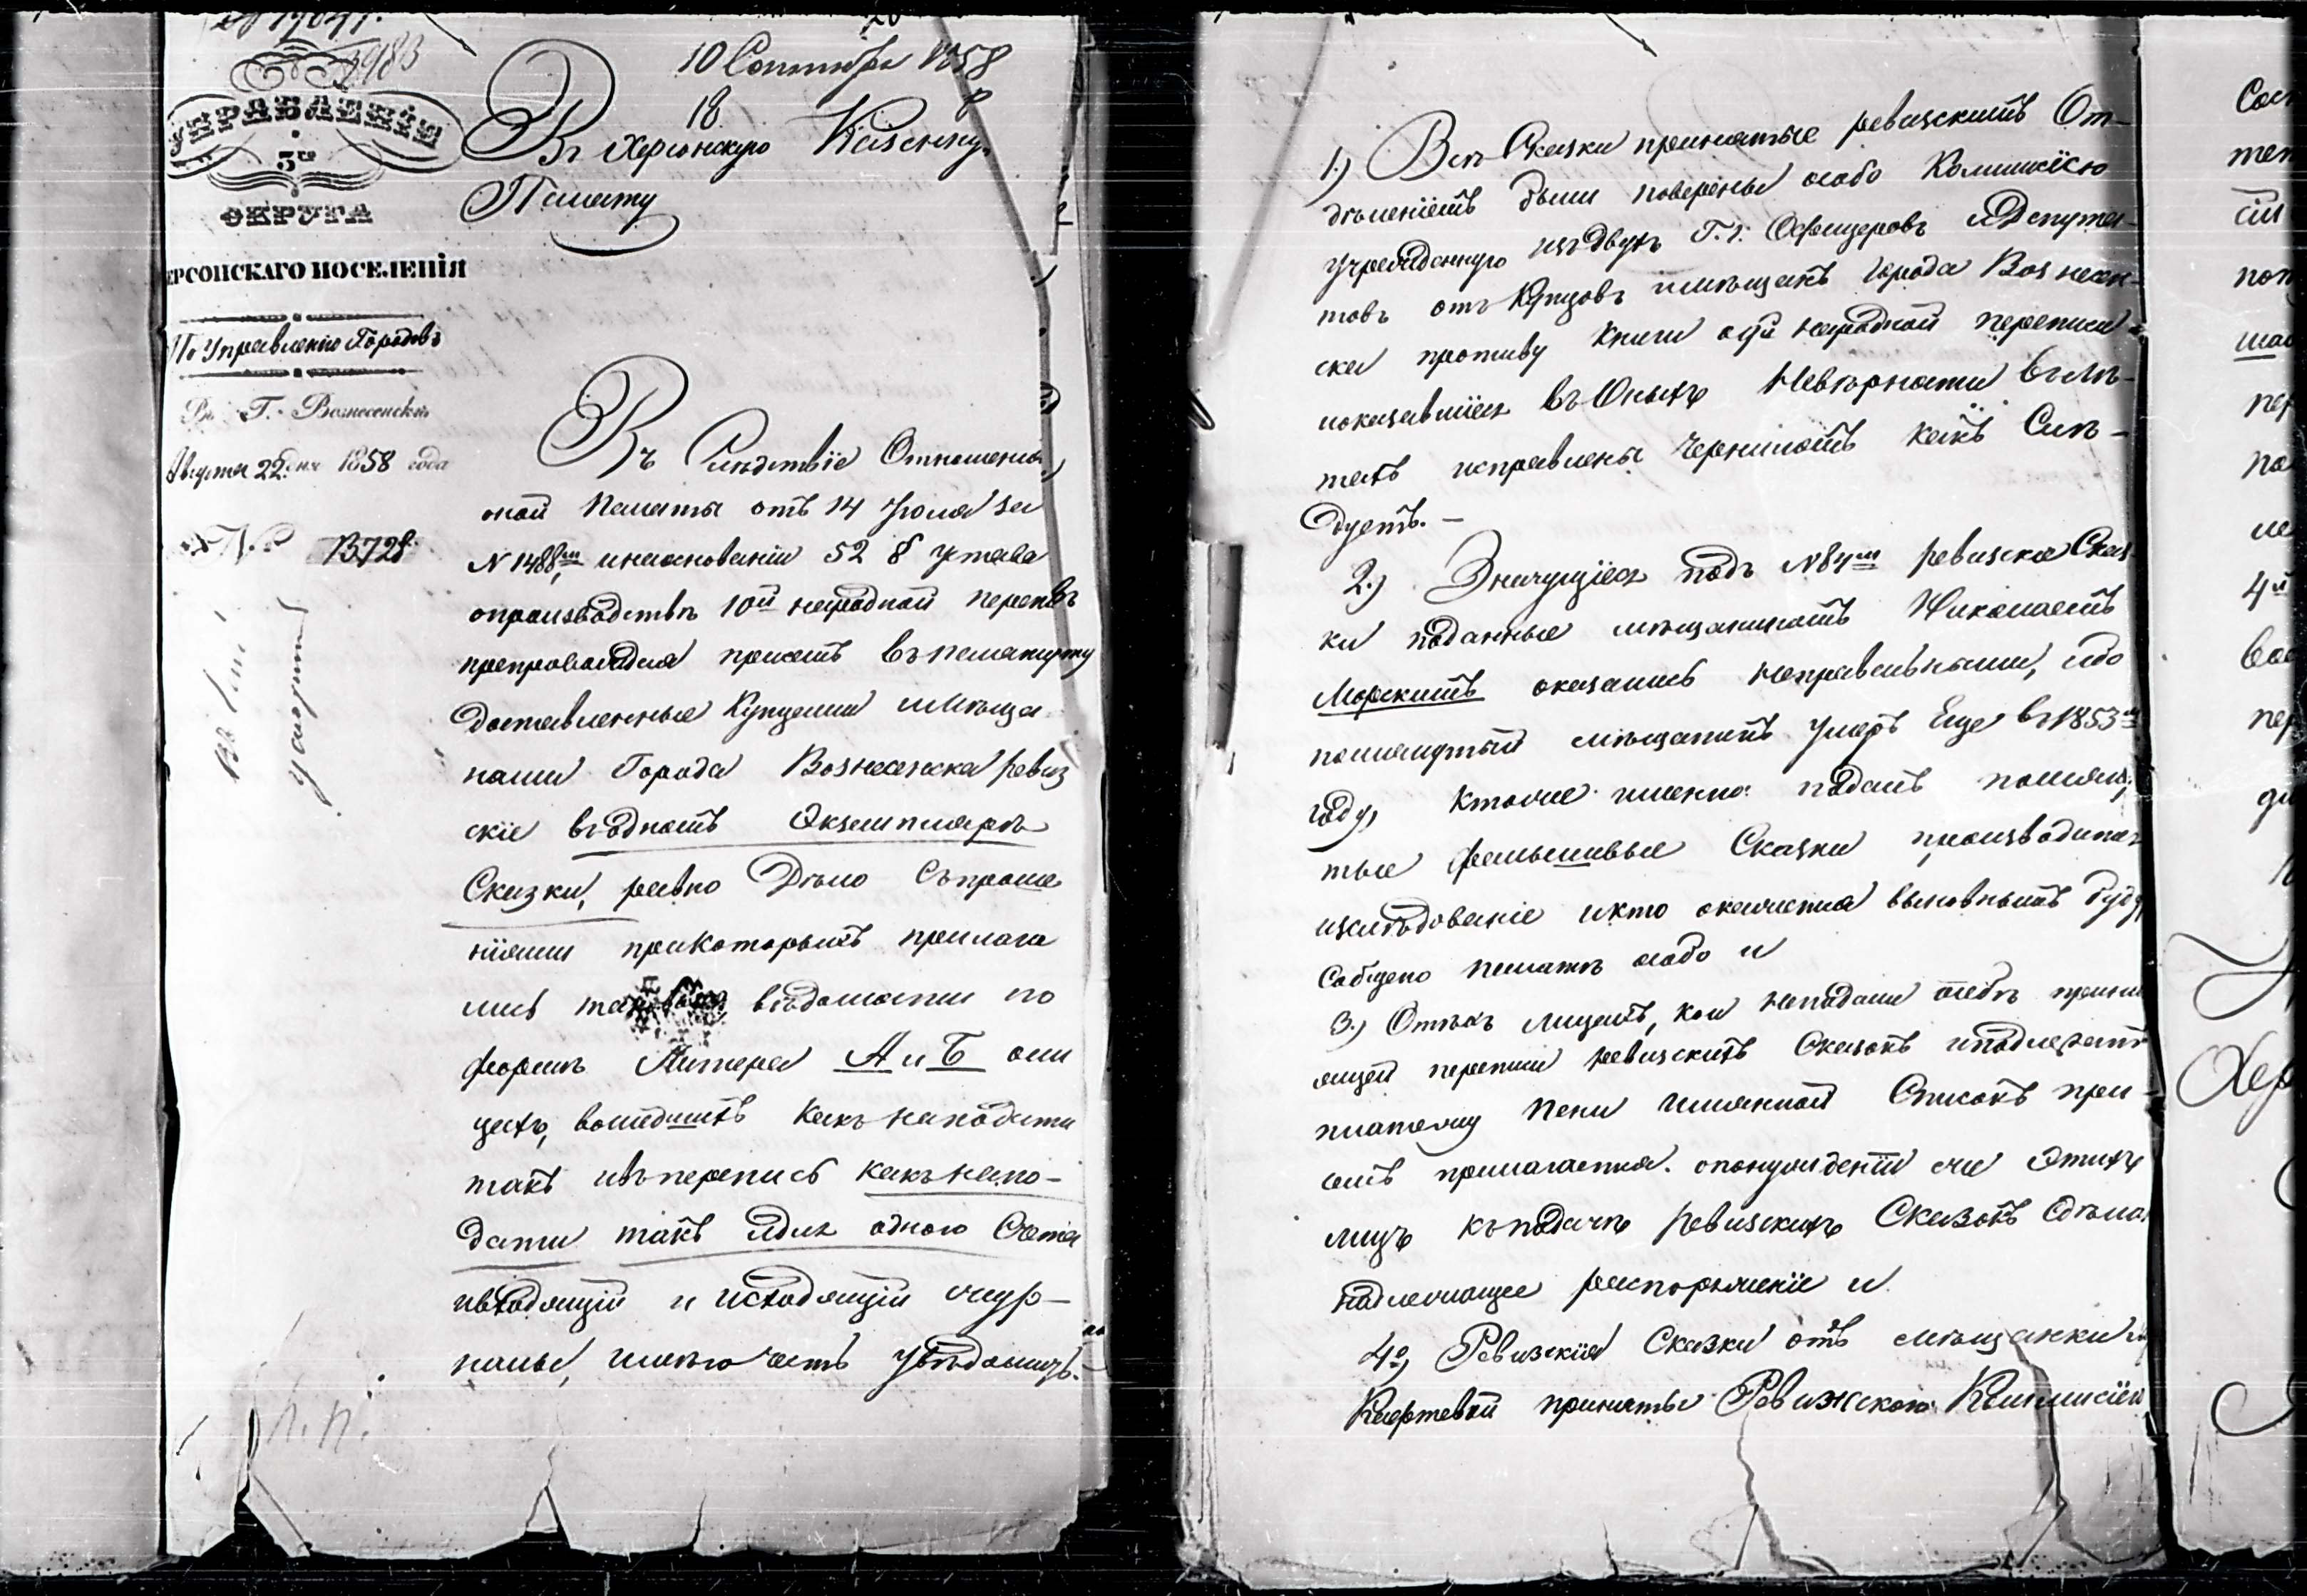 10 Сентября 1858
18
УПРАВЛЕНІЕ
5го
ОКРУГА
ХЕРСОНСКАГО ПОСЕЛЕНІЯ
По Управленію Городовъ
Въ Г. Вознесенскѣ
Августа 22 дня 1858 года
№ 13728
Въ Херсонскую Казенную
Палату
Въ Слѣдствіе Отношенія
оной Палаты отъ 14 Іюля за
№ 1488м, и на основаніи 52 § устава
о производствѣ 10й народной переписи
препровождая при семъ въ
доставленные Купцами и Мѣща
нами Города Вознесенска ревиз
скіе въ одномъ Экземплярѣ
Сказки, равно Дѣло съ проше
ніями при которыхъ прилага
лись вѣдомости по
формѣ Литера А и Б о ли
цахъ, вошедшихъ какъ на подати
такъ и въ перепись какъ на по-
дати такъ и для одного Счета
и входящій и исходящій жур-
налы, имѣю честь увѣдомить.
1.) Всѣ Сказки принятые ревизскимъ От-
дѣленіемъ были повѣрены особо Коммисіею
учрежденную изъ двухъ Г.г. Офицеровъ и Депута-
товъ отъ Купцовъ и мѣщанъ города Вознесен-
ска противу Книги 9й народной переписи и
показавшіеся въ Оныхъ Невѣрности въ мѣ-
стахъ исправлены Чернилами какъ Слѣ-
дуетъ. —
2.) Значущіеся подъ № 84м ревизскіе Сказ
ки поданные мѣщаниномъ Николаемъ
Морскимъ оказались неправильными, ибо
помянутый мѣщанинъ Умеръ Еще въ 1853м
году, Кто же именно подалъ помяну
тые фальшивые Сказки производится
изслѣдованіе и кто окажется виновнымъ буде
Собщено палатѣ особо и
3.) О тѣхъ лицахъ, кои не подали о себѣ
ящей переписи ревизскихъ Сказокъ и подлежатъ
платежу Пени Имянной Списокъ при-
семъ прилагается. о понужденіи же Этихъ
лицъ къ подачѣ ревизскихъ Сказокъ Сдѣлано
надлежащее распоряженіе и
4е) Ревизскія Сказки отъ мѣщанки
приняты Ревизскою Коммисіею